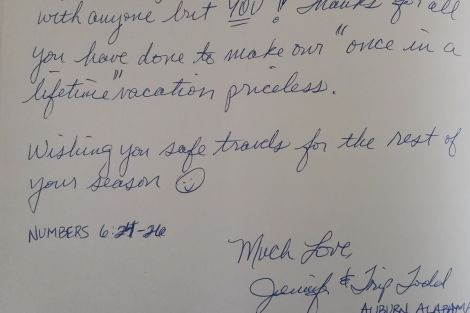 with anyone but YOU! Thanks for all
you have done to make our "once in a
lifetime" vacation priceless.
Wishing you safe travels for the rest of
your season ☺
NUMBERS 6:24-26
Much Love,
Jennifer & Trip Todd
AUBURN ALABAMA